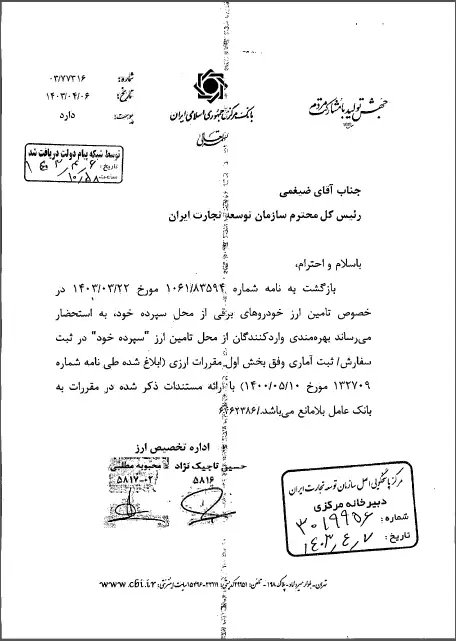 جهش تولید با مشارکت مردم
بانک مرکزی جمهوری اسلامی ایران
بسمه تعالی
شماره: ۰۳/۷۷۳۱۶
تاریخ: ۱۴۰۳/۰۴/۰۶
پیوست: دارد
توسط شبکه پیام دولت دریافت شد
جناب آقای ضیغمی
رئیس کل محترم سازمان توسعه تجارت ایران
باسلام و احترام،
بازگشت به نامه شماره ۱۰۶۱/۸۳۵۹۴ مورخ ۱۴۰۳/۰۳/۲۲ در
خصوص تامین ارز خودروهای برقی از محل سپرده خود، به استحضار
می‌رساند بهره‌مندی واردکنندگان از محل تامین ارز "سپرده خود" در ثبت
سفارش/ ثبت آماری وفق بخش اول مقررات ارزی (ابلاغ شده طی نامه شماره
۱۳۲۷۰۹ مورخ ۱۴۰۰/۰۵/۱۰) با ارائه مستندات ذکر شده در مقررات به
بانک عامل بلامانع می‌باشد./۶۶۶۲۳۸۶
اداره تخصیص ارز
حسین تاجیک نژاد
۵۸۱۶
محبوبه مطلبی
۵۸۱۷-۰۲
دبیرخانه مرکزی
شماره: ۳۰۱۹۹۵۶
تاریخ: ۱۴۰۳/۴/۷
تهران- بلوار میرداماد- پلاک ۱۹۸- تلفن: ۲۹۹۵۱ کدپستی: ۳۳۱۱۱-۱۵۴۹۶ سایت اینترنتی: www.cbi.ir